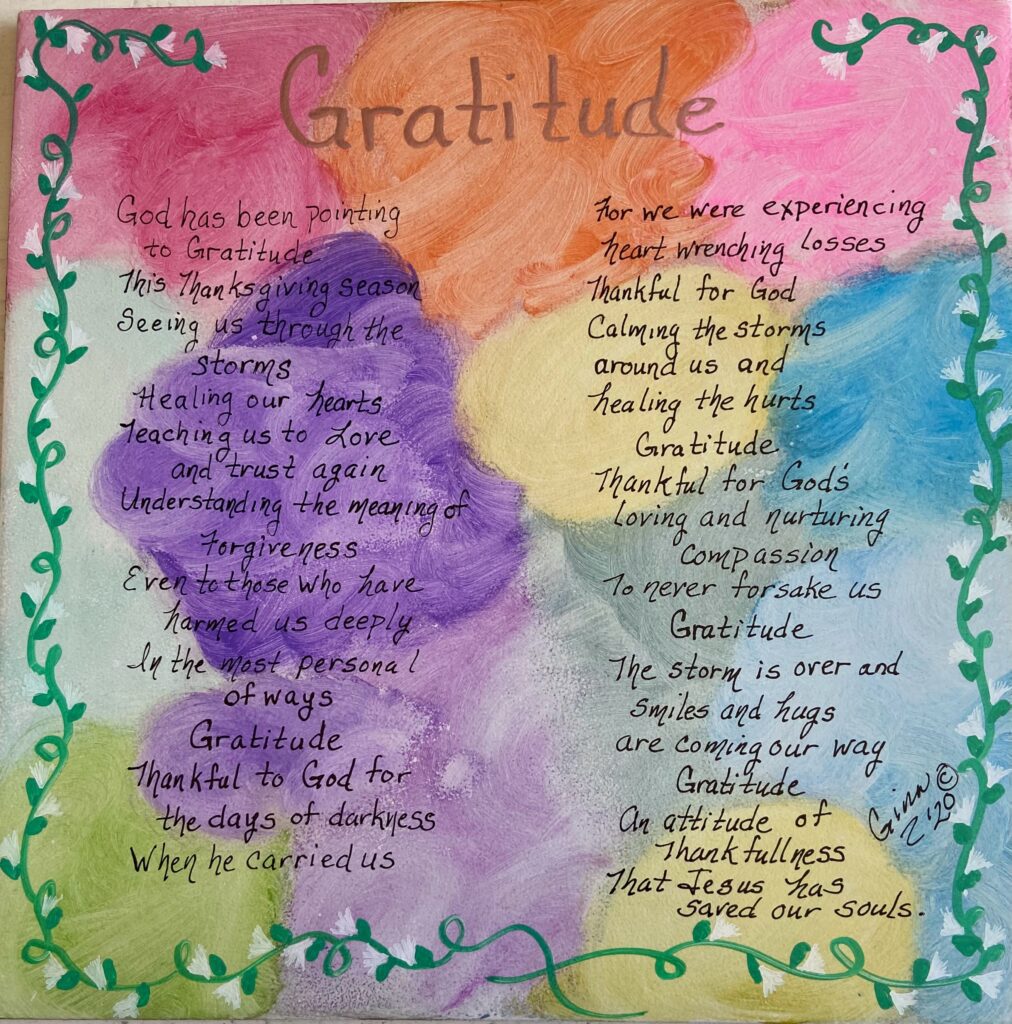 Gratitude
God has been pointing
to Gratitude
This Thanksgiving season
Seeing us through the
storms
Healing our hearts
Teaching us to Love
and trust again
Understanding the meaning of
Forgiveness
Even to those who have
harmed us deeply
In the most personal
of ways
Gratitude
Thankful to God for
the days of darkness
When he carried us
For we were experiencing
heart wrenching losses
Thankful for God
Calming the storms
around us and
healing the hurts
Gratitude
Thankful for God's
loving and nurturing
compassion
To never forsake us
Gratitude
The storm is over and
smiles and hugs
are coming our way
Gratitude
An attitude of
Thankfullness
That Jesus has
saved our souls.
Ginn ©
'20